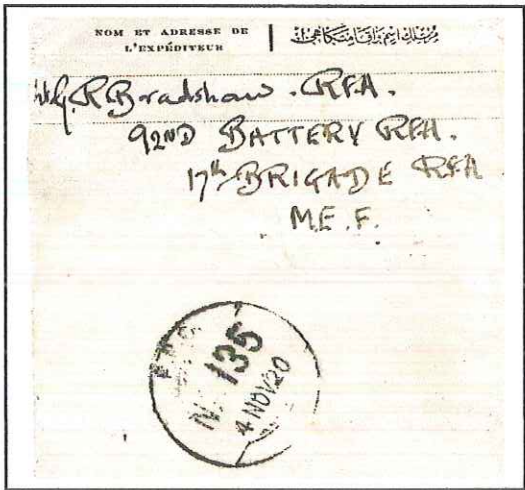 NOM ET ADRESSE DE
L'EXPÉDITEUR
G.R. Bradshaw. RFA.
92ND BATTERY RFA.
17th BRIGADE RFA
M.E.F.
135
4 NOV 20